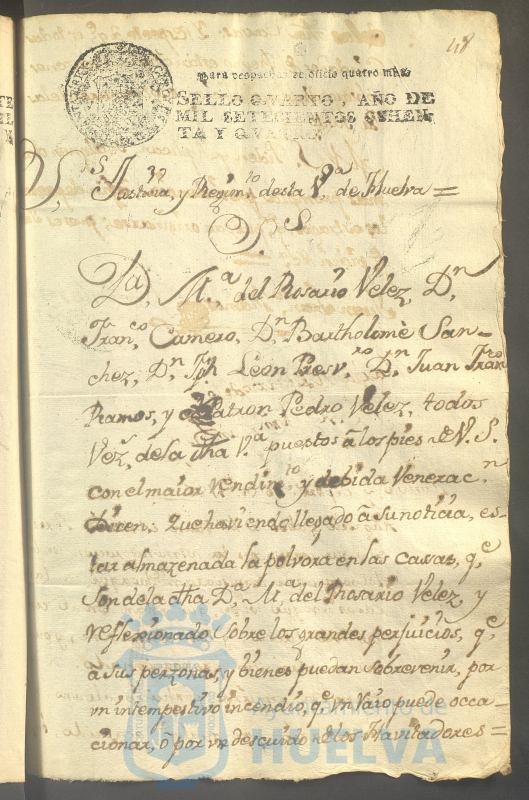 48
Para despachos de oficio quatro mrs.
SELLO QVARTO, AÑO DE
MIL SETECIENTOS OCHEN-
TA Y QVATRO.
S.s Justicia, y Regim.to desta V.a de Huelva =
S.
Da, M.a del Rosario Velez, D.n
Fran.co Camero, D.n Bartholomè San-
chez, D.n Jph Leòn Presv.ro D.n Juan Fran.co
Ramos, y el Patron Pedro Velez, todos
Vez.s de la dha V.a puestos â los pies de V. S.
con el maior rendim.to y debida Venerac.n
Dicen: Que haviendo llegado â su noticia, es-
tar almazenada la polvora en las casas, q.e
son de la dha D.a M.a del Rosario Velez, y
reflexionado sobre los grandes perjuicios, q.e
â sus perzonas, y bienes puedan sobrevenir, por
vn intempestivo incendio, q.e vn Raio puede occa-
cionar, o por vn descuido de los Havitadores =
Ayuntamiento de
HUELVA